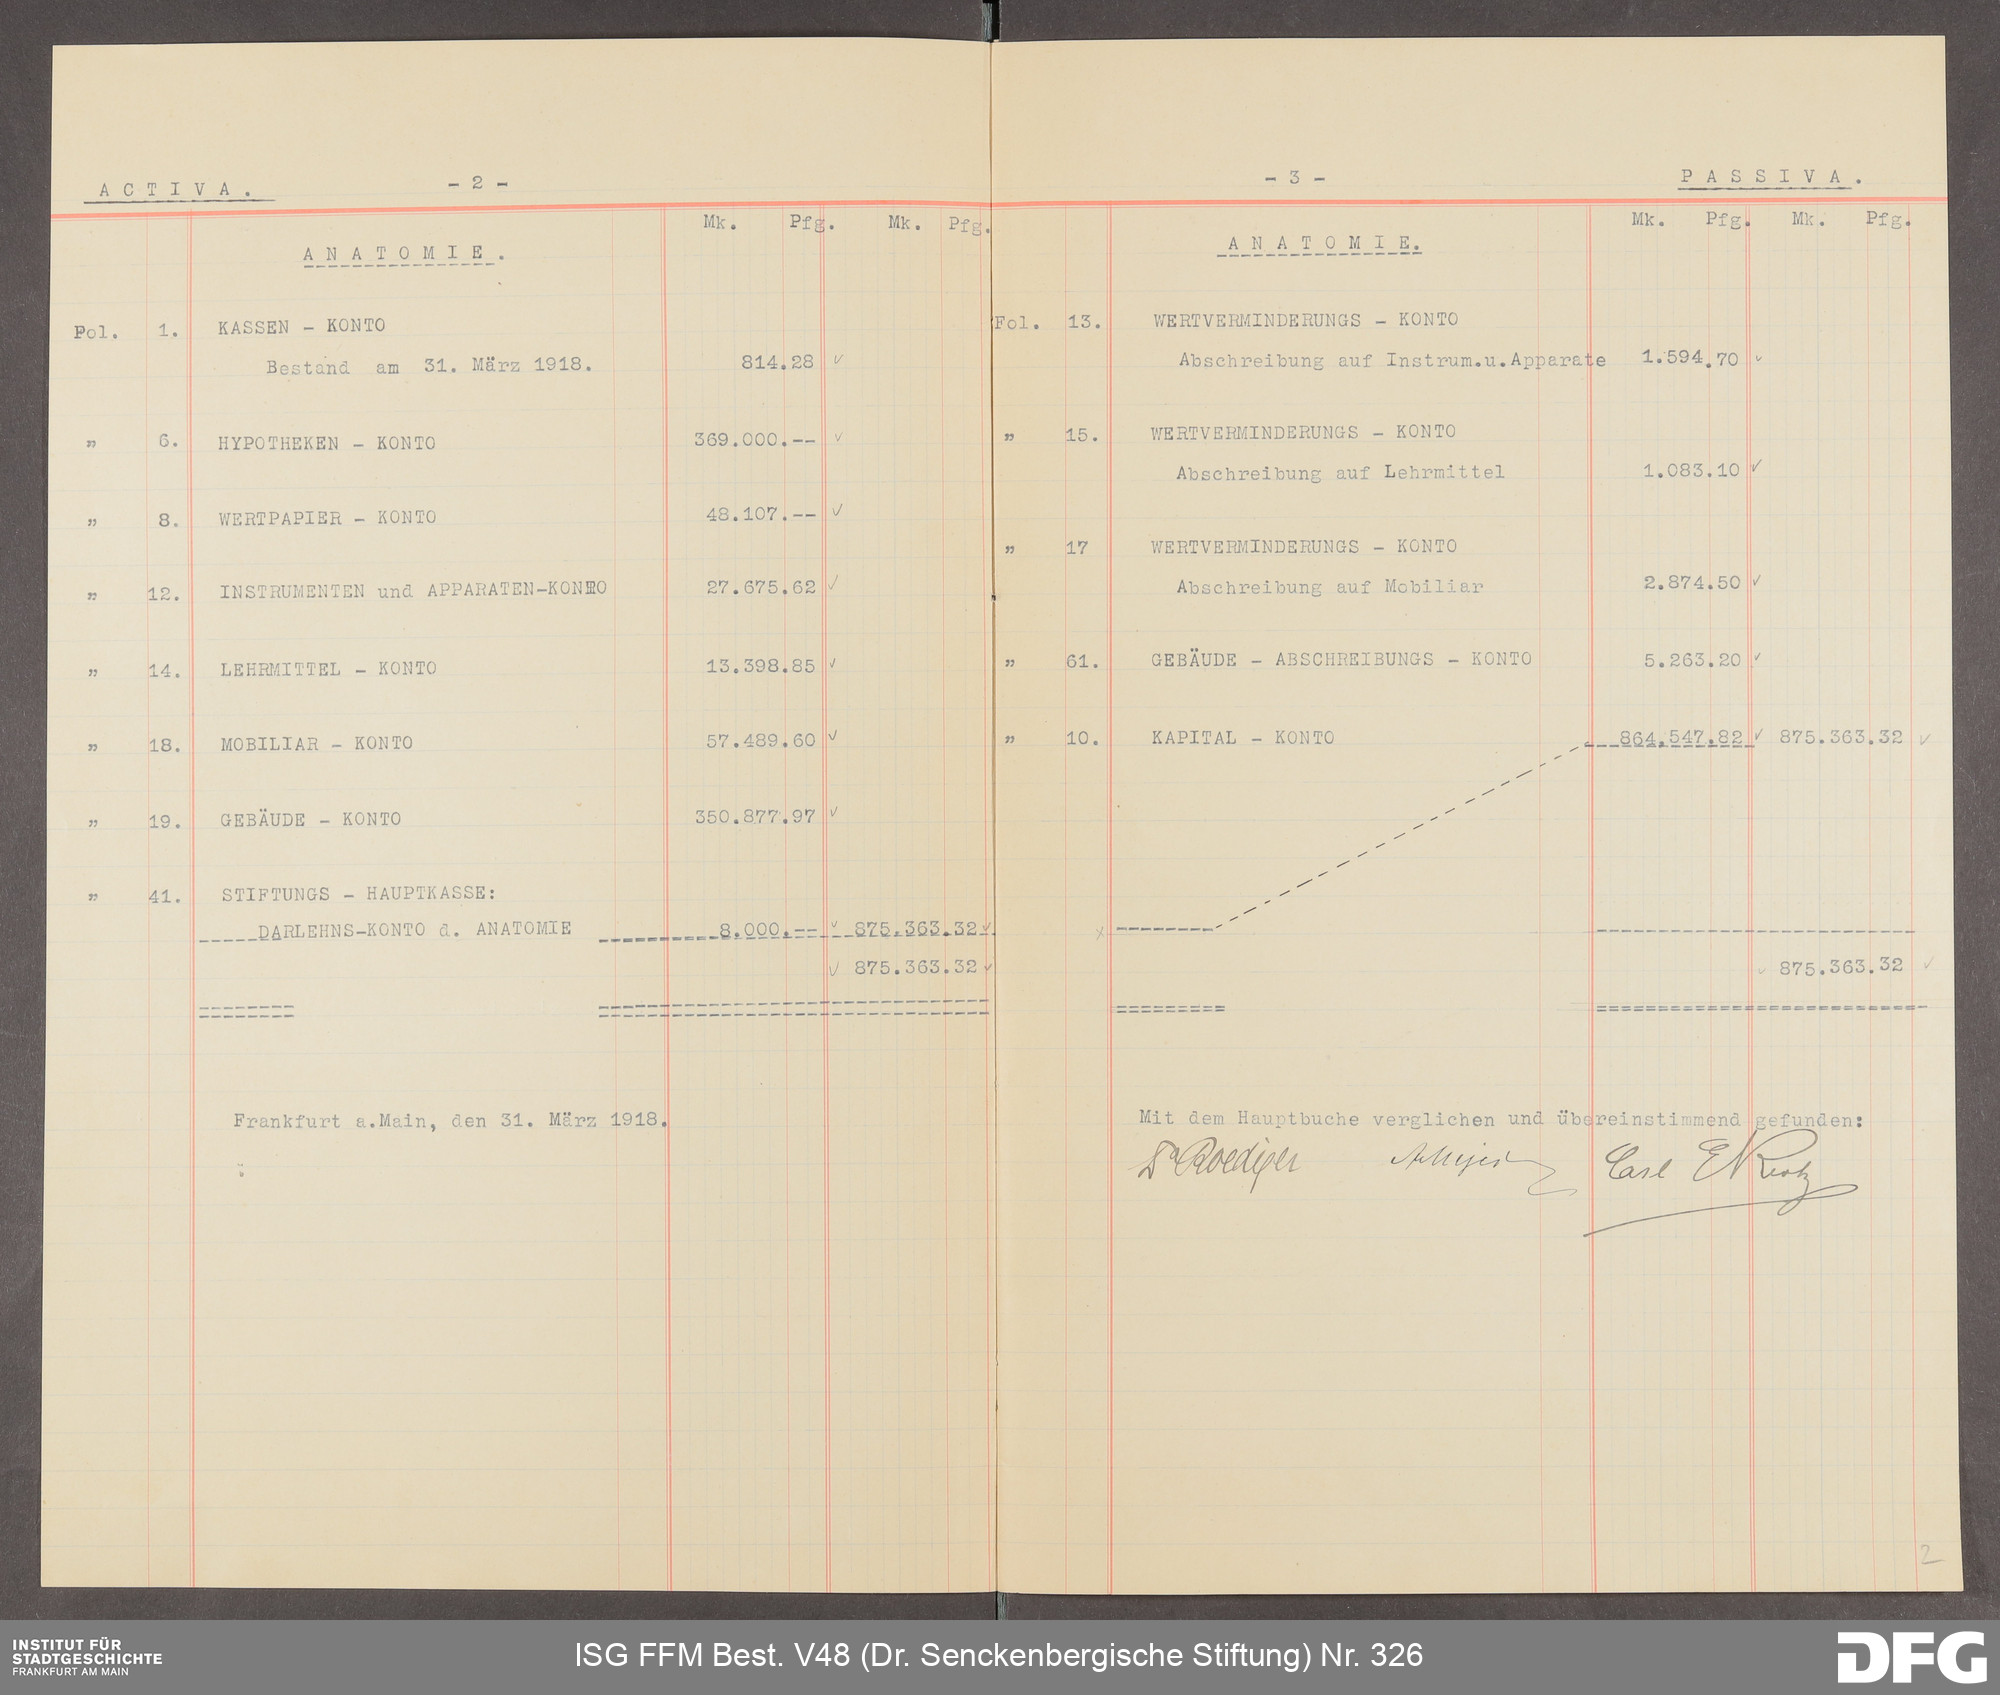 ACTIVA.
- 2 -
Mk. Pfg. Mk. Pfg.
ANATOMIE.
Fol. 1. KASSEN - KONTO
Bestand am 31. März 1918. 814.28 ✓
" 6. HYPOTHEKEN - KONTO 369.000.-- ✓
" 8. WERTPAPIER - KONTO 48.107.-- ✓
" 12. INSTRUMENTEN und APPARATEN-KONTO 27.675.62 ✓
" 14. LEHRMITTEL - KONTO 13.398.85 ✓
" 18. MOBILIAR - KONTO 57.489.60 ✓
" 19. GEBÄUDE - KONTO 350.877.97 ✓
" 41. STIFTUNGS - HAUPTKASSE:
DARLEHNS-KONTO d. ANATOMIE 8.000.-- ✓ 875.363.32 ✓
✓ 875.363.32 ✓
Frankfurt a.Main, den 31. März 1918.
- 3 -
PASSIVA.
Mk. Pfg. Mk. Pfg.
ANATOMIE.
Fol. 13. WERTVERMINDERUNGS - KONTO
Abschreibung auf Instrum.u.Apparate 1.594.70 ✓
" 15. WERTVERMINDERUNGS - KONTO
Abschreibung auf Lehrmittel 1.083.10 ✓
" 17 WERTVERMINDERUNGS - KONTO
Abschreibung auf Mobiliar 2.874.50 ✓
" 61. GEBÄUDE - ABSCHREIBUNGS - KONTO 5.263.20 ✓
" 10. KAPITAL - KONTO 864.547.82 ✓ 875.363.32 ✓
✓ 875.363.32 ✓
Mit dem Hauptbuche verglichen und übereinstimmend gefunden:
Dr Roediger Carl E
2
INSTITUT FÜR
STADTGESCHICHTE
FRANKFURT AM MAIN
ISG FFM Best. V48 (Dr. Senckenbergische Stiftung) Nr. 326
DFG